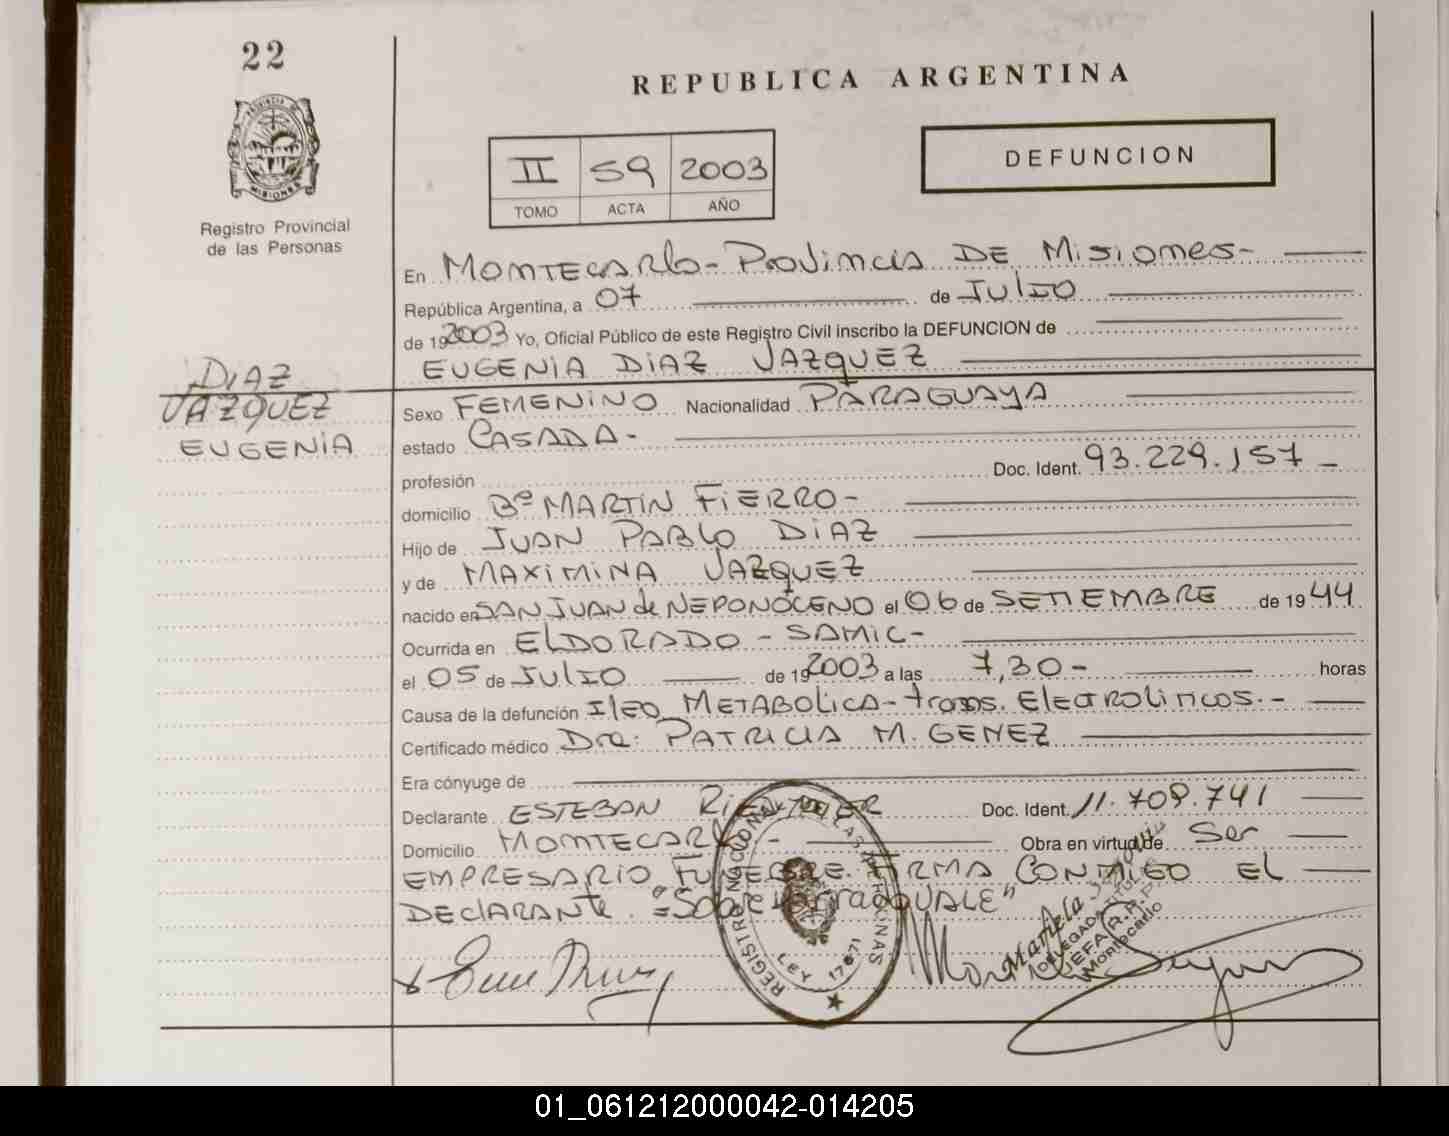 22
REPUBLICA ARGENTINA
PROVINCIA DE
MISIONES
Registro Provincial
de las Personas
II 59 2003
TOMO ACTA AÑO
DEFUNCION
En MONTECARLO - PROVINCIA DE MISIONES-
República Argentina, a 07 de JULIO
de 192003 Yo, Oficial Público de este Registro Civil inscribo la DEFUNCION de
EUGENIA DIAZ VAZQUEZ
DIAZ
VAZQUEZ
EUGENIA
Sexo FEMENINO Nacionalidad PARAGUAYA
estado CASADA-
profesión Doc. Ident. 93.229.157 -
domicilio Bº MARTIN FIERRO-
Hijo de JUAN PABLO DIAZ
y de MAXIMINA VAZQUEZ
nacido en SAN JUAN de NEPONOCENO el 06 de SETIEMBRE de 1944
Ocurrida en ELDORADO - SAMIC-
el 05 de JULIO de 192003 a las 7,30- horas
Causa de la defunción ILEO METABOLICA- trans. ELECTROLITICOS.-
Certificado médico Dra: PATRICIA M. GENEZ
Era cónyuge de
Declarante ESTEBAN Doc. Ident. 11.709.741
Domicilio MONTECARLO - Obra en virtud de Ser
EMPRESARIO FUNEBRE. FIRMA CONMIGO EL
DECLARANTE. =Sobre borrado VALE"
REGISTRO NACIONAL DE LAS PERSONAS
LEY 17671
Mariela
DELEGADA
JEFA R.P.P.
Montecarlo
01_061212000042-014205